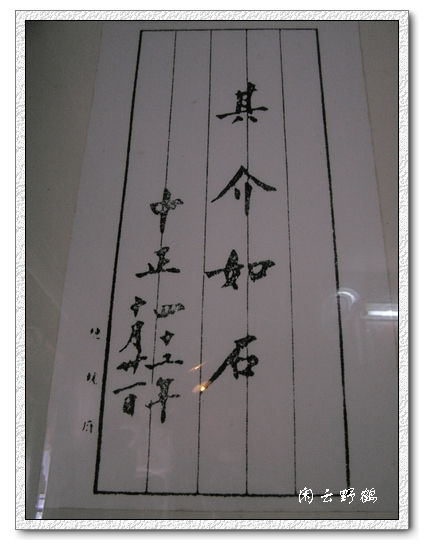 其介如石
中正 四十五年
十月卅一日
闲云野鹤